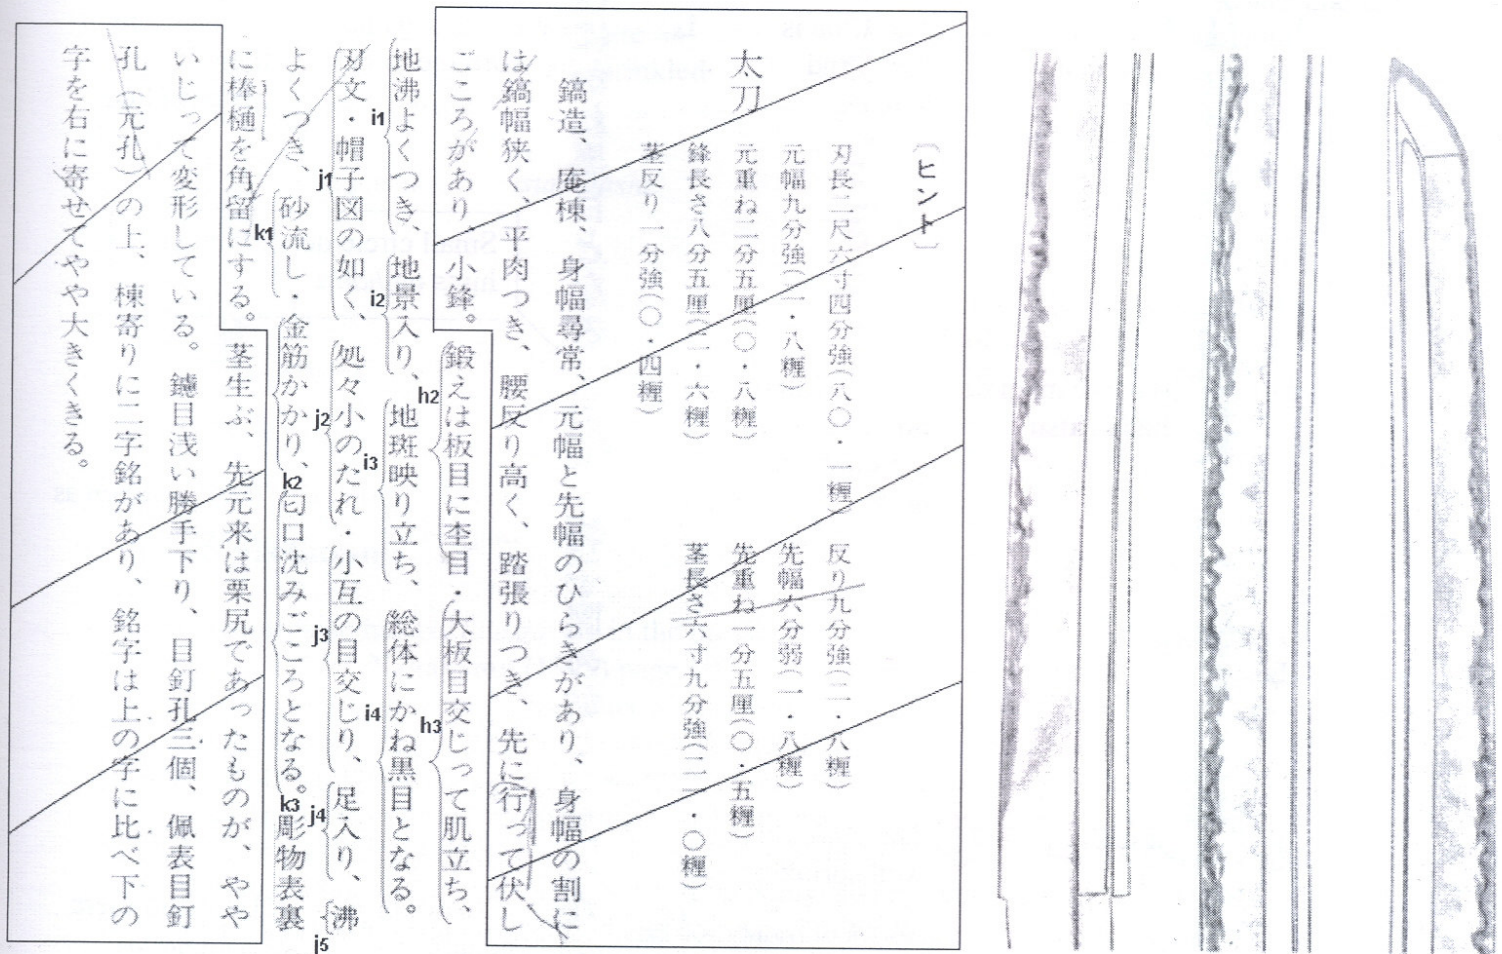 〔ヒント〕
刃長二尺六寸四分強(八〇・一糎) 反り九分強(二・八糎)
元幅九分強(二・八糎) 先幅六分弱(一・八糎)
太刀 元重ね二分五厘(〇・八糎) 先重ね一分五厘(〇・五糎)
鋒長さ八分五厘(二・六糎) 茎長さ六寸九分強(二一・〇糎)
茎反り一分強(〇・四糎)
鎬造、庵棟、身幅尋常、元幅と先幅のひらきがあり、身幅の割に
は鎬幅狭く、平肉つき、腰反り高く、踏張りつき、先に行って伏し
ごころがあり、小鋒。鍛えは板目に杢目・大板目交じって肌立ち、
h2
h3
地沸よくつき、地景入り、地斑映り立ち、総体にかね黒目となる。
i1
i2
i3
i4
刃文・帽子図の如く、処々小のたれ・小互の目交じり、足入り、沸
j1
j2
j3
j4
j5
よくつき、砂流し・金筋かかり、匂口沈みごころとなる。彫物表裏
k1
k2
k3
に棒樋を角留にする。茎生ぶ、先元来は栗尻であったものが、やや
いじって変形している。鑢目浅い勝手下り、目釘孔三個、佩表目釘
孔(元孔)の上、棟寄りに二字銘があり、銘字は上の字に比べ下の
字を右に寄せてやや大きくきる。